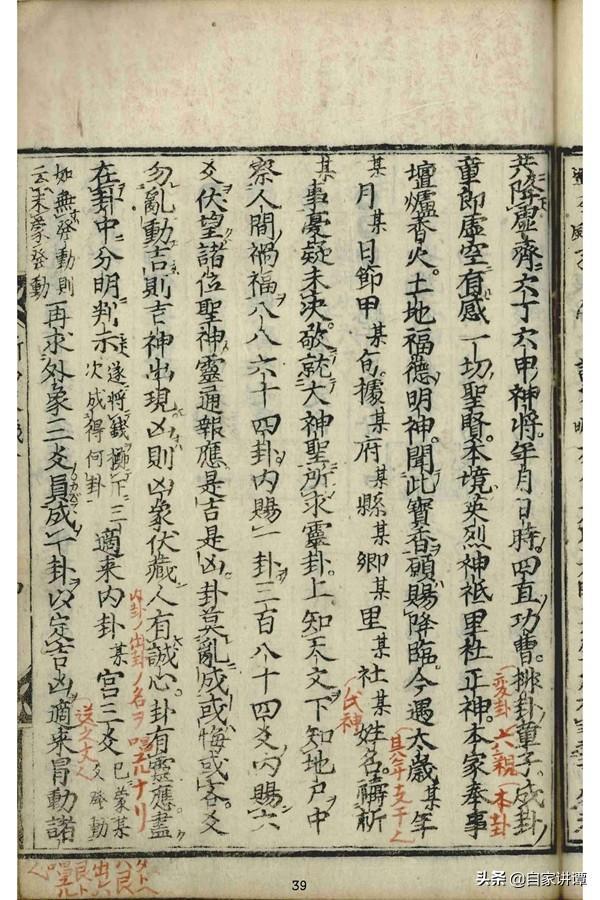 共降虛齊六丁六甲神將年月日時四直功曹排卦童子成卦
童郎虛空有感一切聖賢本境英烈神祇里社正神本家奉事
壇爐香火土地福德明神聞此寶香願賜降臨今遇太歲某年
某月某日節甲某旬據某府某縣某鄉某里某社某姓名禱祈
某事憂疑未決敬就大神聖所求靈卦上知天文下知地戶中
察人間禍福八八六十四卦內賜一卦三百八十四爻內賜六
爻伏望諸位聖神靈通報應是吉是凶卦莫亂成或悔或吝爻
勿亂動吉則吉神出現凶則凶象伏藏人有誠心卦有靈應盡
在卦中分明判示遂將錢擲下三次成得何卦適來內卦某宮三爻已蒙某爻發動
如無發動則云未蒙發動再求外象三爻員成一卦以定吉凶適來冒動諸
変卦
六親
本卦
其年支干人
氏神
内卦ノ出卦ノ名ヲ唱ルナリ
39
头条 @自家讲谭